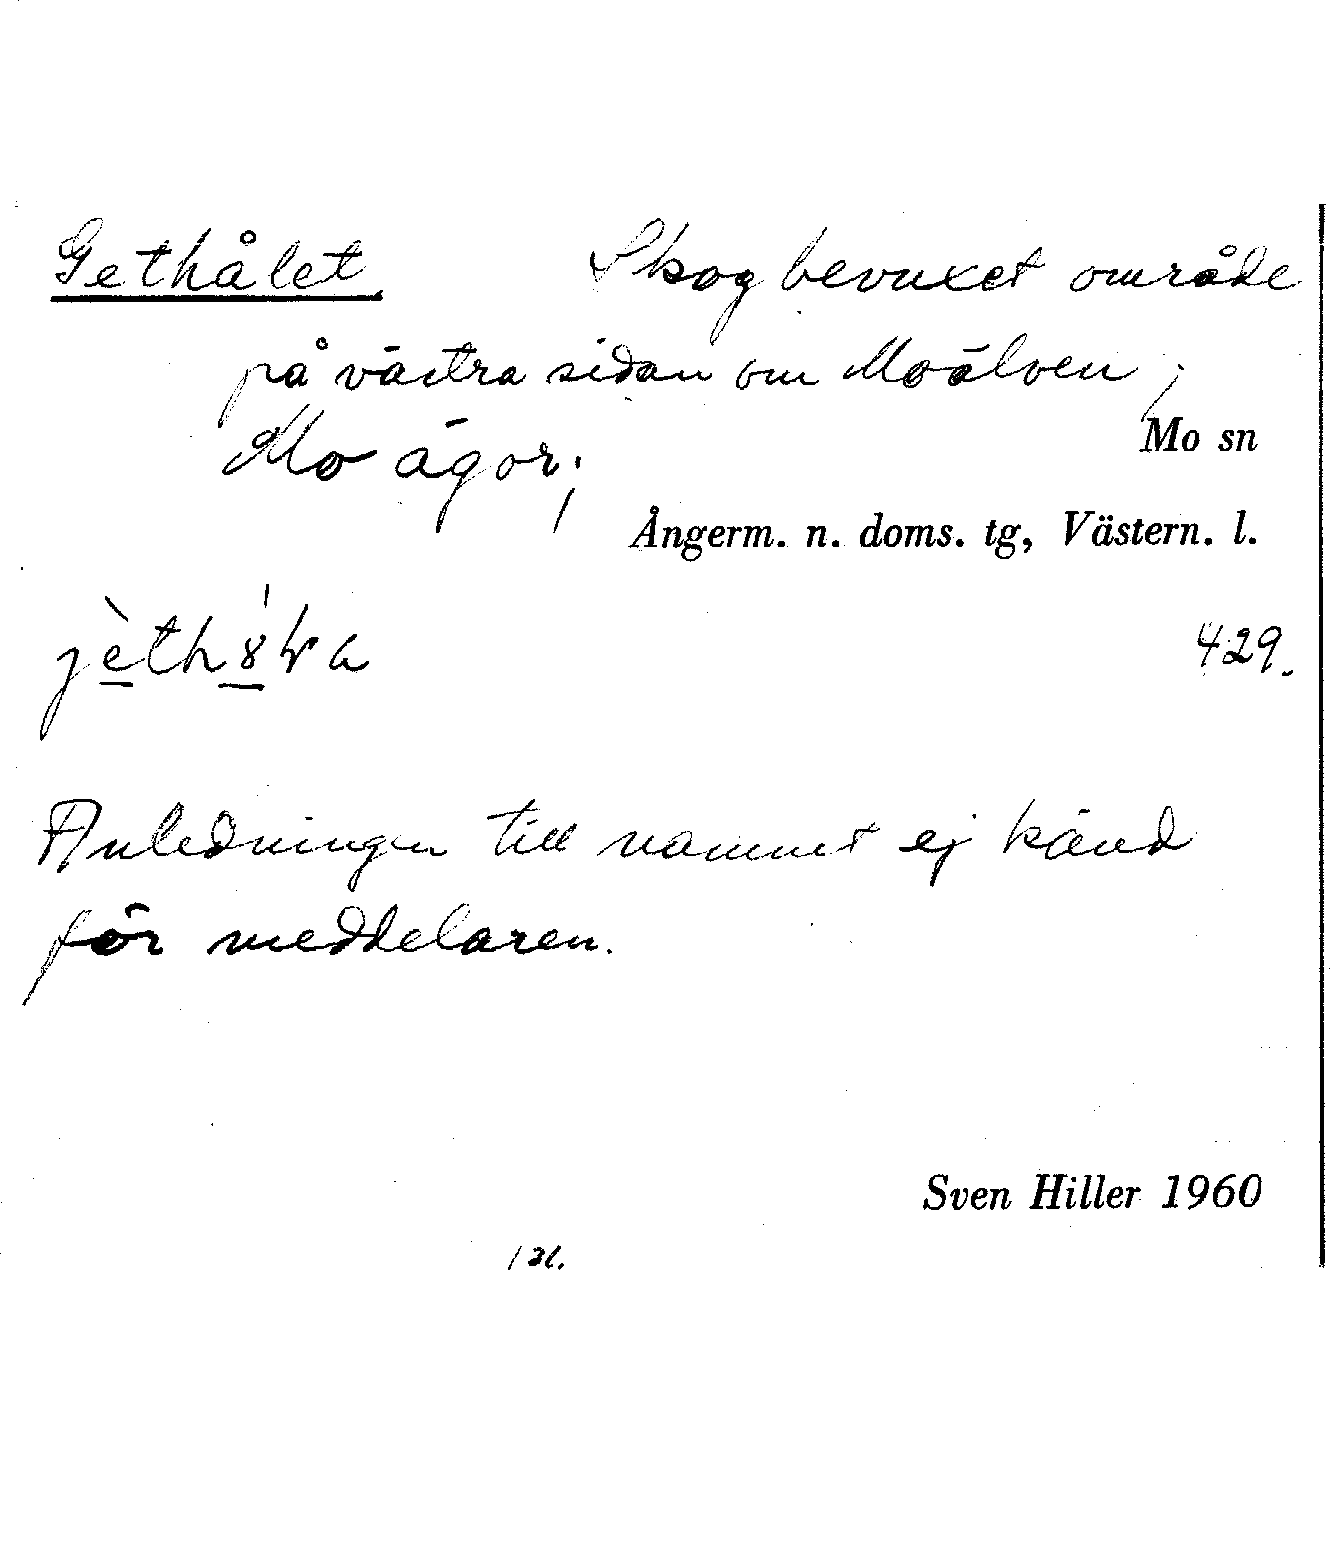 Gethålet. Skogbevuxet område
på västra sidan om Moälven,
Mo ägor; Mo sn
Ångerm. n. doms. tg, Västern. l.
429.
Anledningen till namnet ej känd
för meddelaren.
Sven Hiller 1960